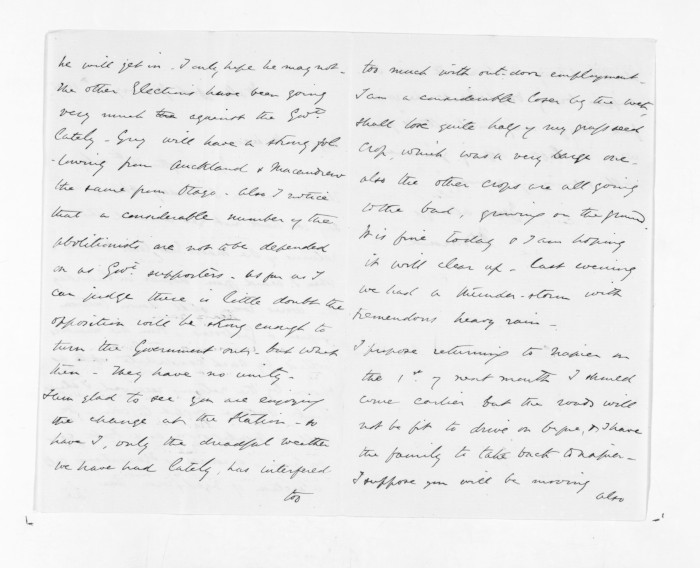 he will get in. I only hope he may not.
The other Elections have been going
very much against the Govt.
lately. Grey will have a strong fol
-lowing from Auckland & Macandrew
the same from Otago. Also I notice
that a considerable number of the
abolitionists are not to be depended
on as Govt. supporters. As far as I
can judge there is little doubt the
opposition will be strong enough to
turn the Government out. but what
then. They have no unity.
I am glad to see you are enjoying
the change at the Station. so
have I, only the dreadful weather
we have had lately, has interfered
too
too much with out-door employment.
I am a considerable loser by the wet,
shall lose quite half of my grass seed
crop, which was a very large one.
also the other crops are all going
to the bad, growing on the ground.
It is fine today & I am hoping
it will clear up. Last evening
we had a thunder-storm with
tremendous heavy rain.
I propose returning to Napier on
the 1st. of next month I should
come earlier but the roads will
not be fit to drive on before, & I have
the family to take back to Napier.
I suppose you will be moving
also